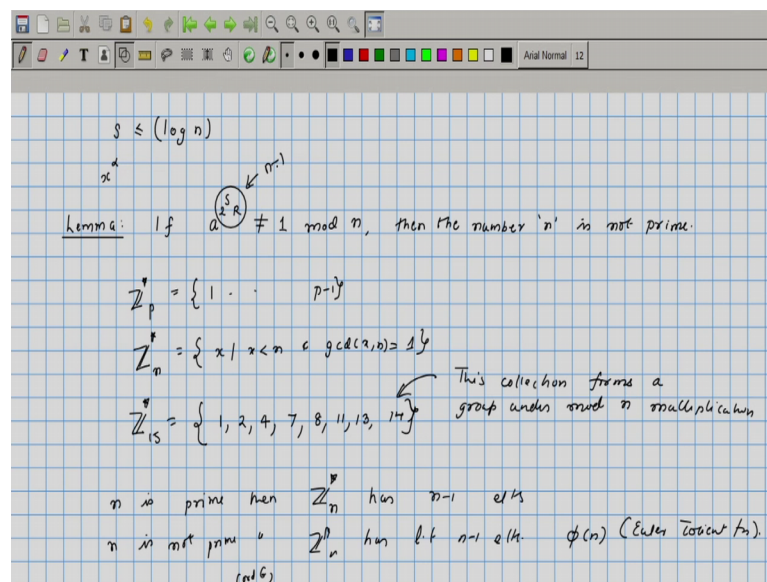 Arial Normal 12
s ≤ (log n)
x^α
n-1
Lemma: If a^{2^S R} ≠ 1 mod n, then the number 'n' is not prime.
ℤ*_p = { 1 . . p-1}
ℤ*_n = { x | x<n & gcd(x,n)=1}
This collection forms a
group under mod n multiplication
ℤ*_15 = { 1, 2, 4, 7, 8, 11, 13, 14}
n is prime then ℤ*_n has n-1 elts
n is not prime " ℤ*_n has l.t n-1 elts. φ(n) (Euler Totient fn).